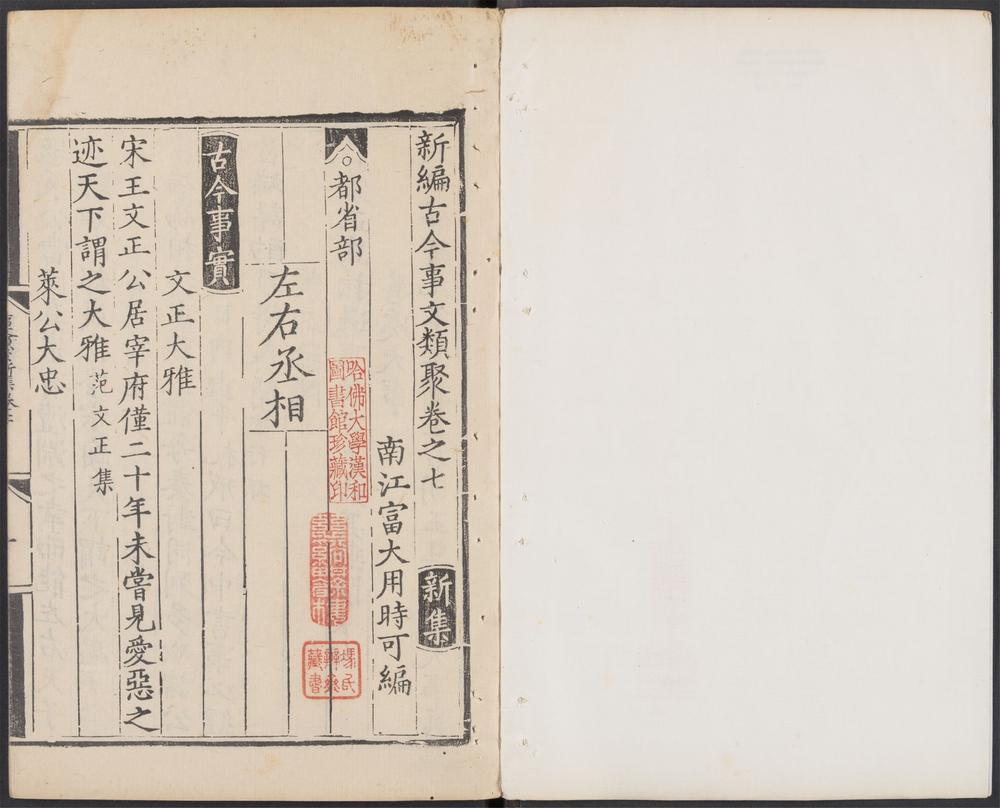 新編古今事文類聚卷之七 新集
南江富大用時可編
都省部
左右丞相
古今事實
文正大雅
宋王文正公居宰府僅二十年未嘗見愛惡之
迹天下謂之大雅 范文正集
萊公大忠
哈佛大學漢和
圖書館珍藏印